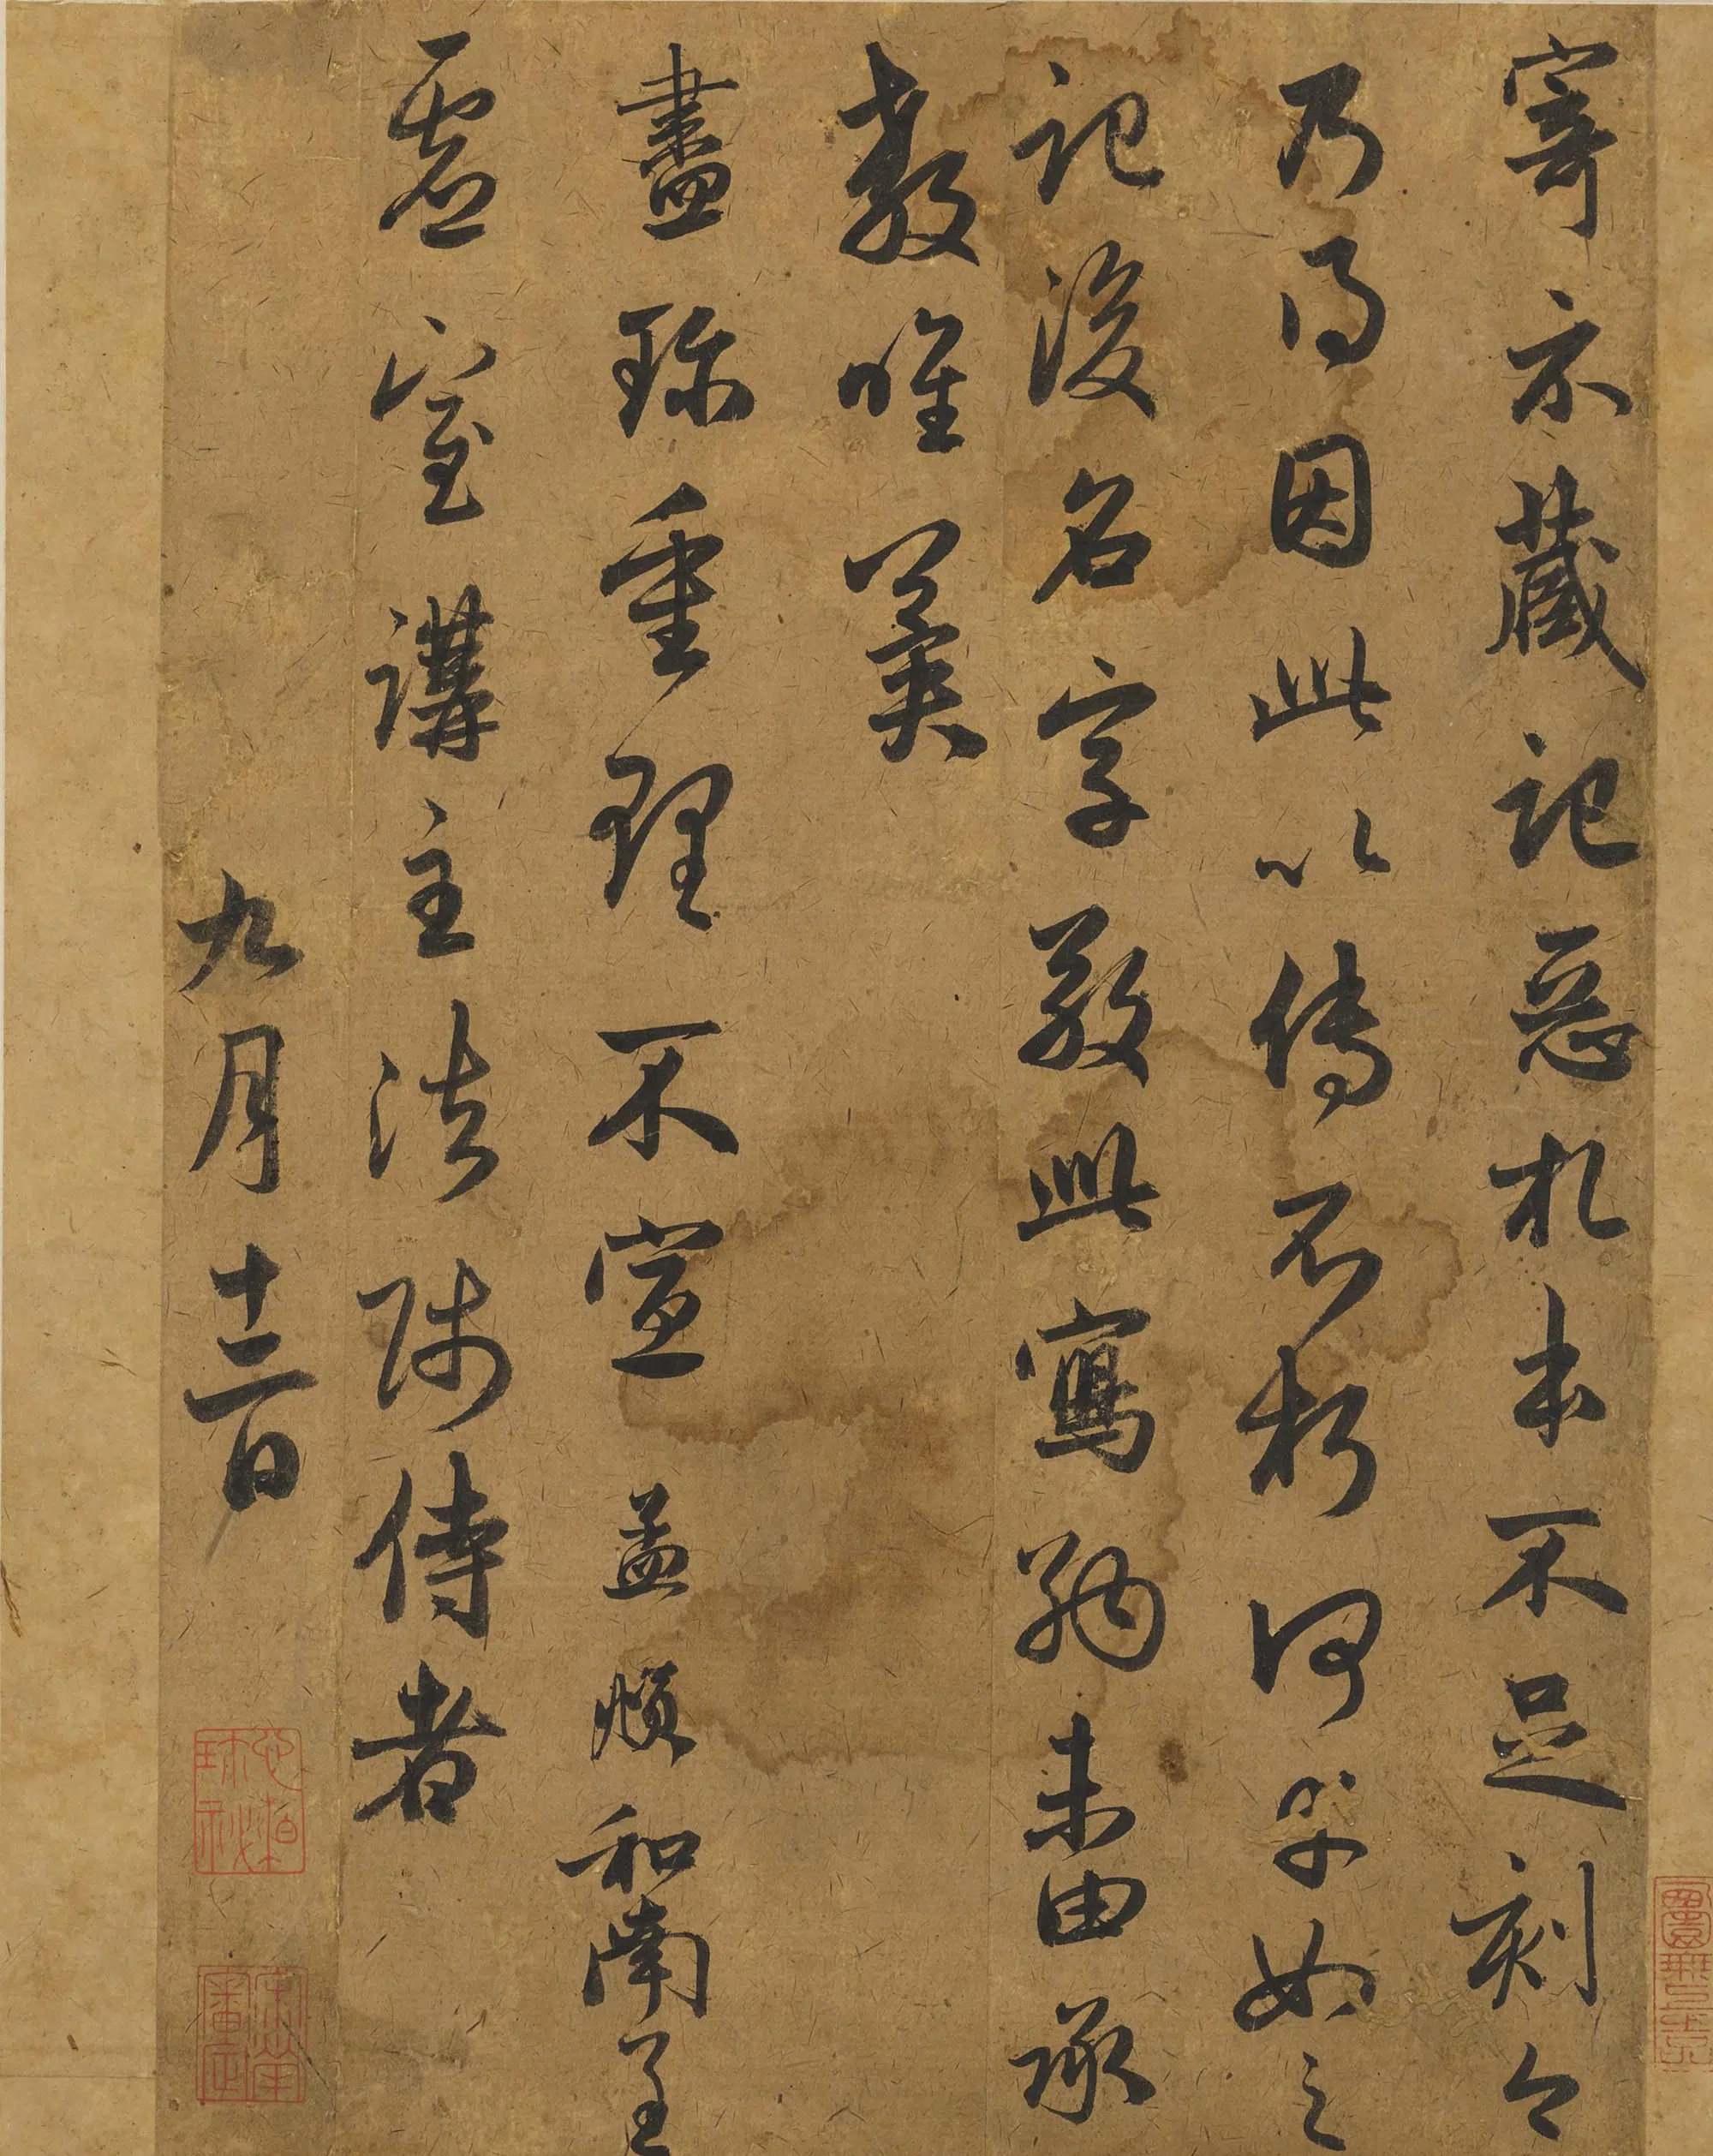 寄示藏記惡札本不足刻今
乃得因此以傳不朽何幸如之
記後名字教此寫納未由承
教唯冀
盡珍重理不宣 孟頫和南呈
虛室講主法師侍者
九月十二日